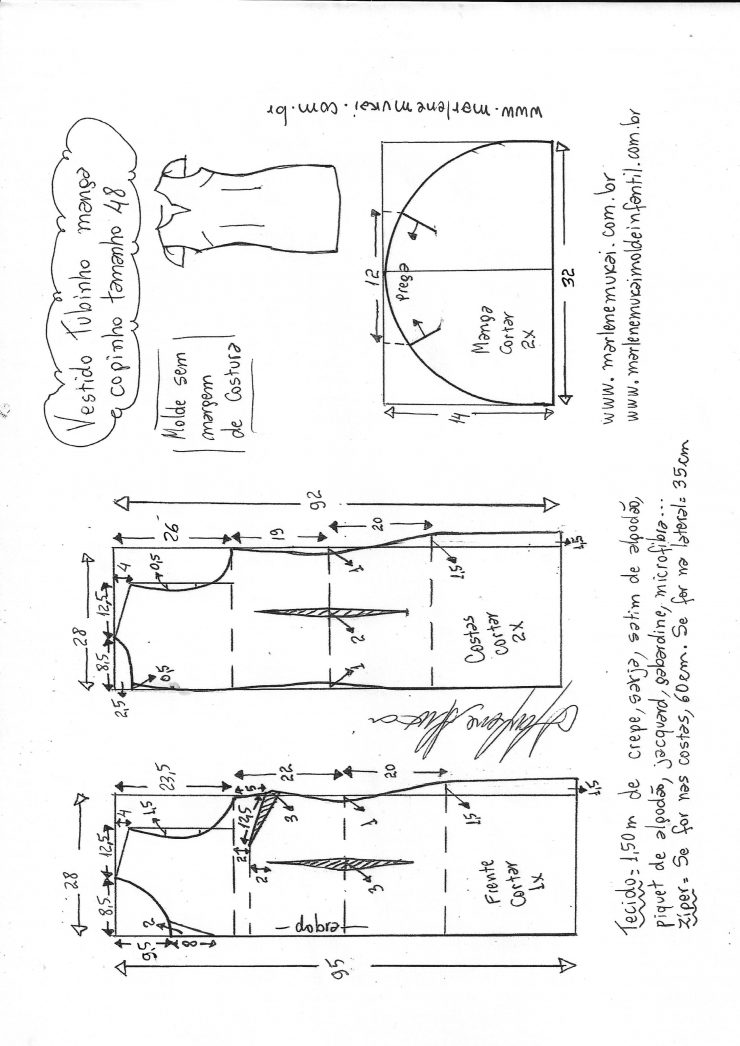 Vestido Tubinho manga
copinho tamanho 48
Molde sem
margem
de costura
www.marlenemukai.com.br
12
Prega
Manga
Cortar
2X
14
32
www.marlenemukai.com.br
www.marlenemukaimoldeinfantil.com.br
28
8,5
12,5
2,5
4
0,5
0,5
26
19
20
92
1
2
1
1,5
1,5
Costas
Cortar
2X
28
8,5
12,5
9,5
8
2
4
1,5
23,5
22
20
5
12,5
3
2
2
3
1
1,5
1,5
95
dobra
Frente
Cortar
1x
Tecido = 1,50m de crepe, sarja, satim de algodão,
piquet de algodão, jacquard, gabardine, microfibra...
Zíper = Se for nas costas, 60cm. Se for na lateral = 35cm